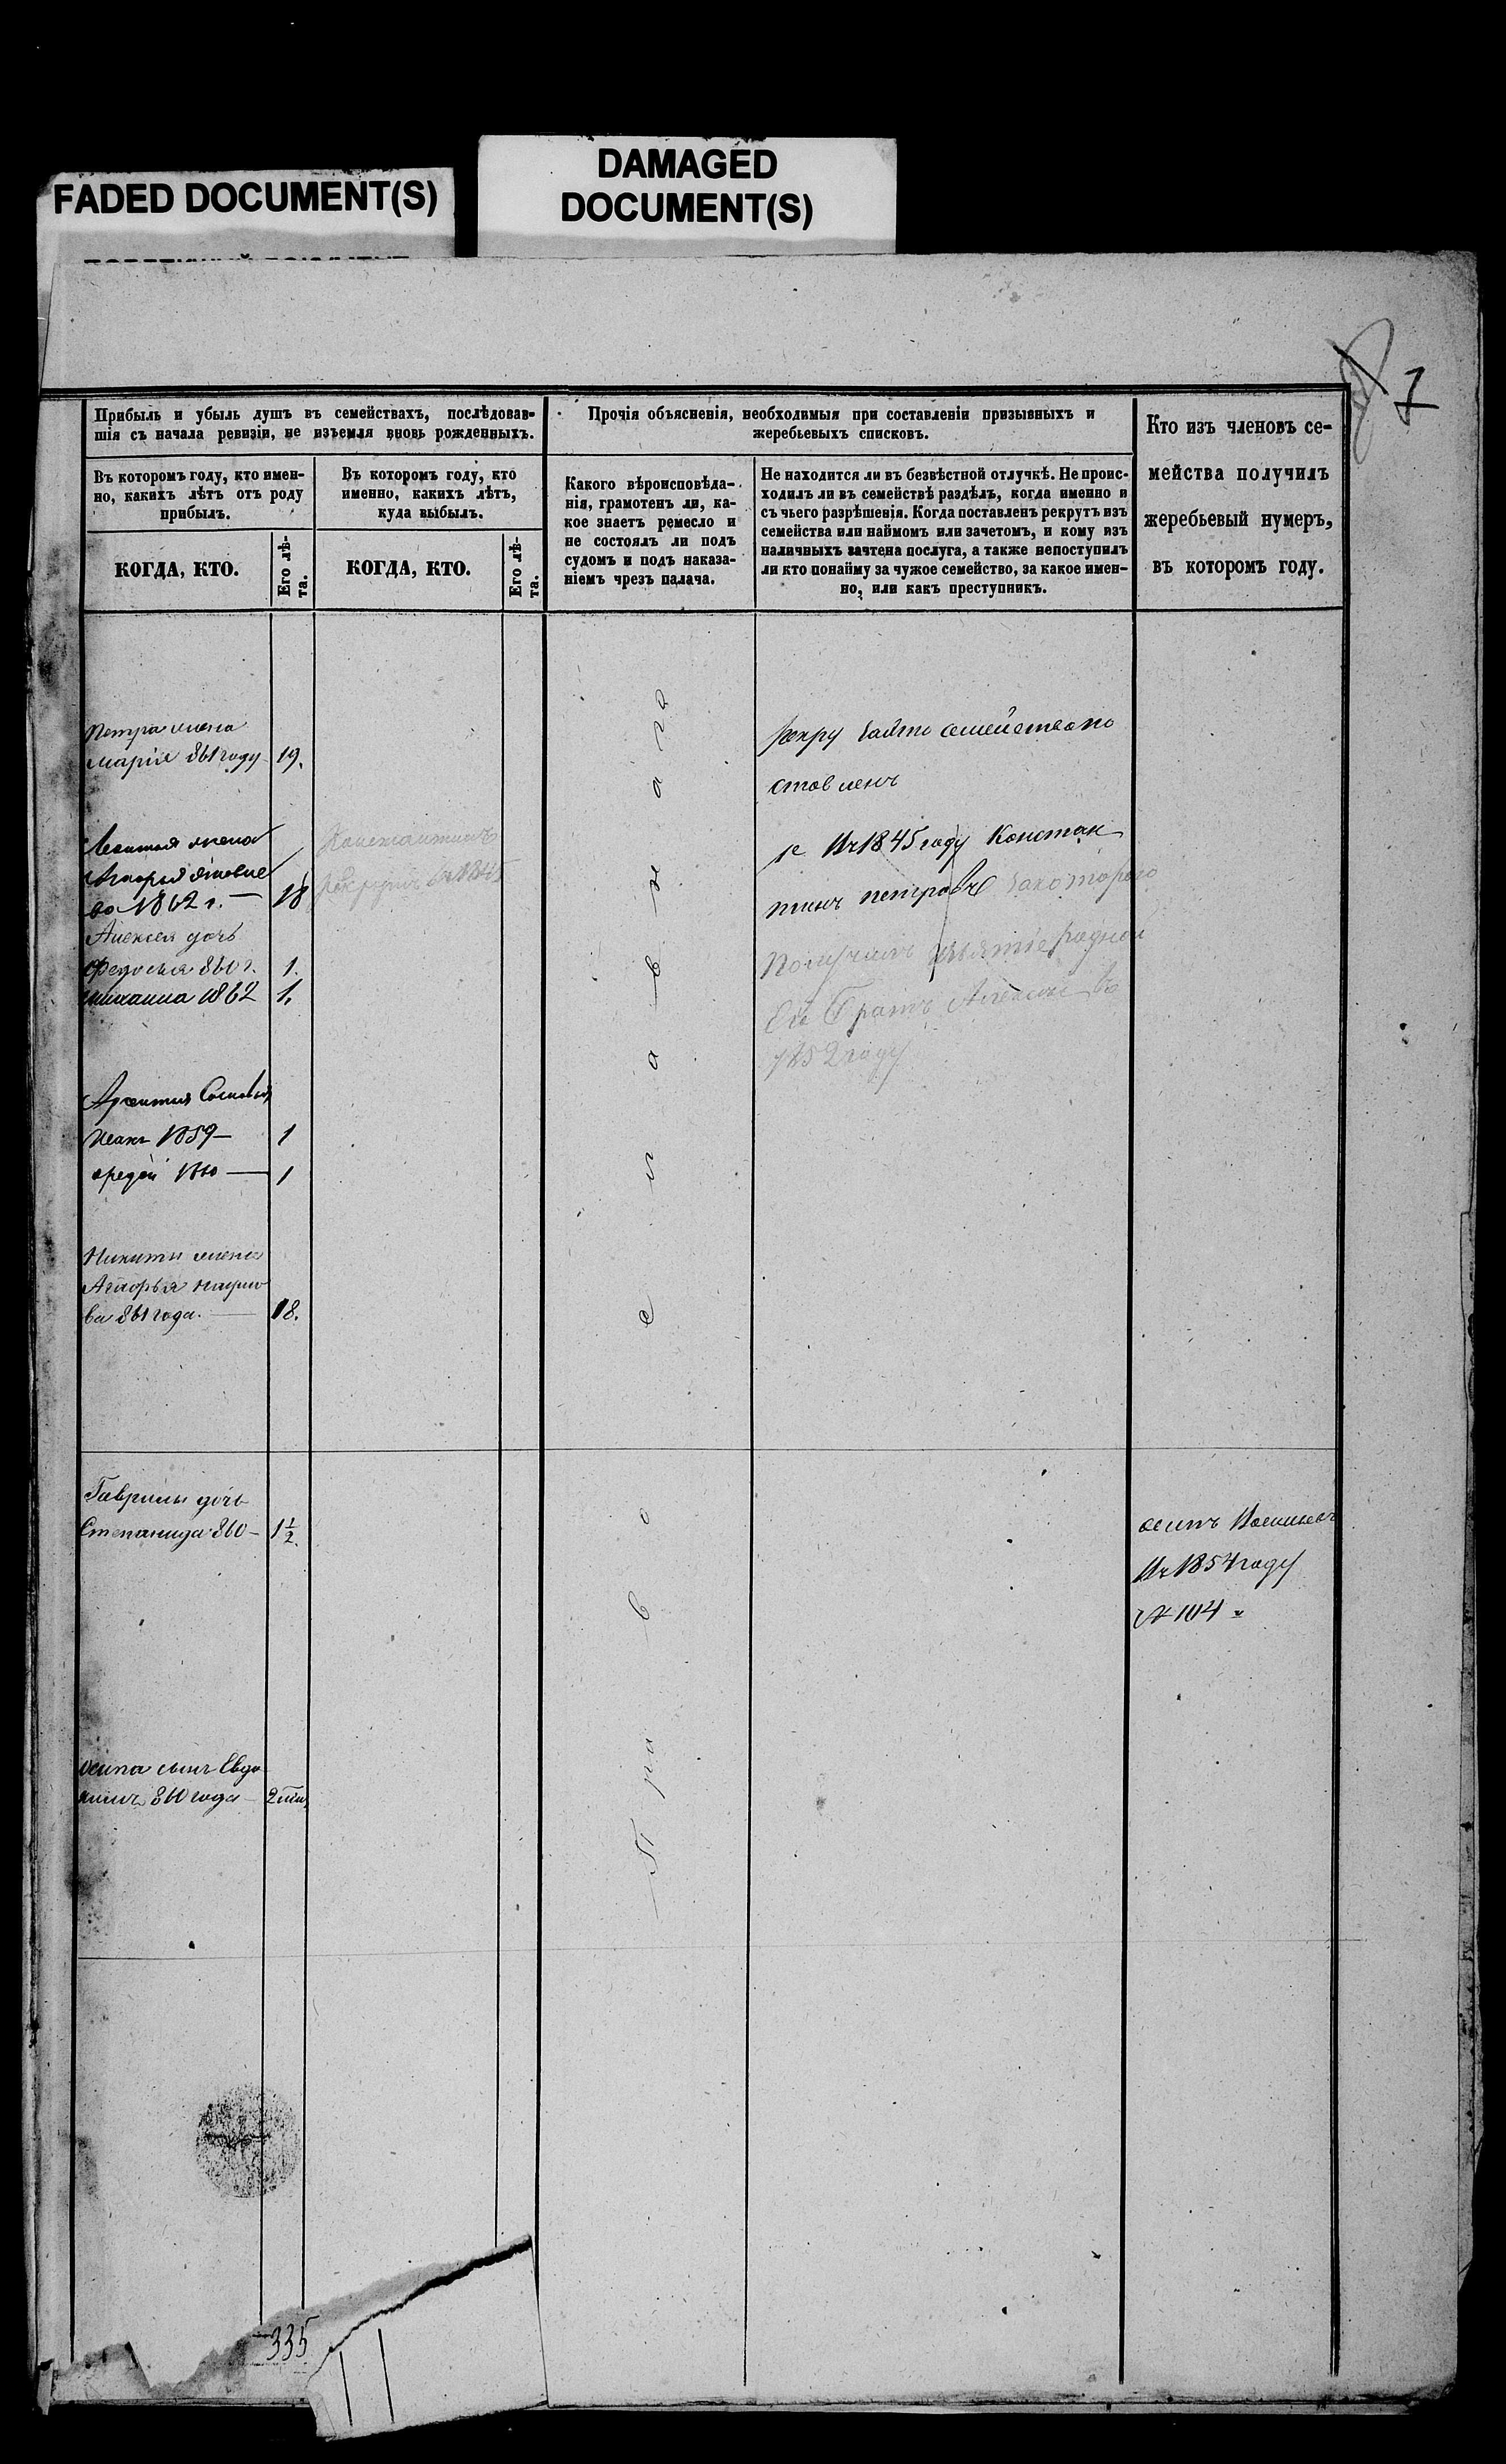 FADED DOCUMENT(S)
DAMAGED
DOCUMENT(S)
7
Прибыль и убыль душъ въ семействахъ, послѣдовав-
шія съ начала ревизіи, не изъемля вновь рожденныхъ.
Въ которомъ году, кто имен-
но, какихъ лѣтъ отъ роду
прибылъ.
КОГДА, КТО.
Его лѣ-
та.
Въ которомъ году, кто
именно, какихъ лѣтъ,
куда выбылъ.
КОГДА, КТО.
Его лѣ-
та.
Прочія объясненія, необходимыя при составленіи призывныхъ и
жеребьевыхъ списковъ.
Какого вѣроисповѣда-
нія, грамотенъ ли, ка-
кое знаетъ ремесло и
не состоялъ ли подъ
судомъ и подъ наказа-
ніемъ чрезъ палача.
Не находится ли въ безвѣстной отлучкѣ. Не проис-
ходилъ ли въ семействѣ раздѣлъ, когда именно и
съ чьего разрѣшенія. Когда поставленъ рекрутъ изъ
семейства или наймомъ или зачетомъ, и кому изъ
наличныхъ зачтена послуга, а также непоступилъ
ли кто понайму за чужое семейство, за какое имен-
но, или какъ преступникъ.
Кто изъ членовъ се-
мейства получилъ
жеребьевый нумеръ,
въ которомъ году.
Петра жена
Марія 861 году 19.
жена
во 1862 г. — 18
Алексея дочь
Федосья 860 г. 1.
1862 1.
Сыновья
Иванъ 1859 — 1
1
Никиты жена
ва 861 года. — 18.
Гаврилы дочь
Степанида 860 — 1 1/2.
Осипа сынъ Евдо
кимъ 860 года — 2
Константинъ
1845
Православнаго
семейства по
ставленъ
1845 году Констан
тинъ Петровъ закоторого
Получилъ
Его Братъ Алексей во
1852 году
Осипъ Васильевъ
1854 году
№ 104
335